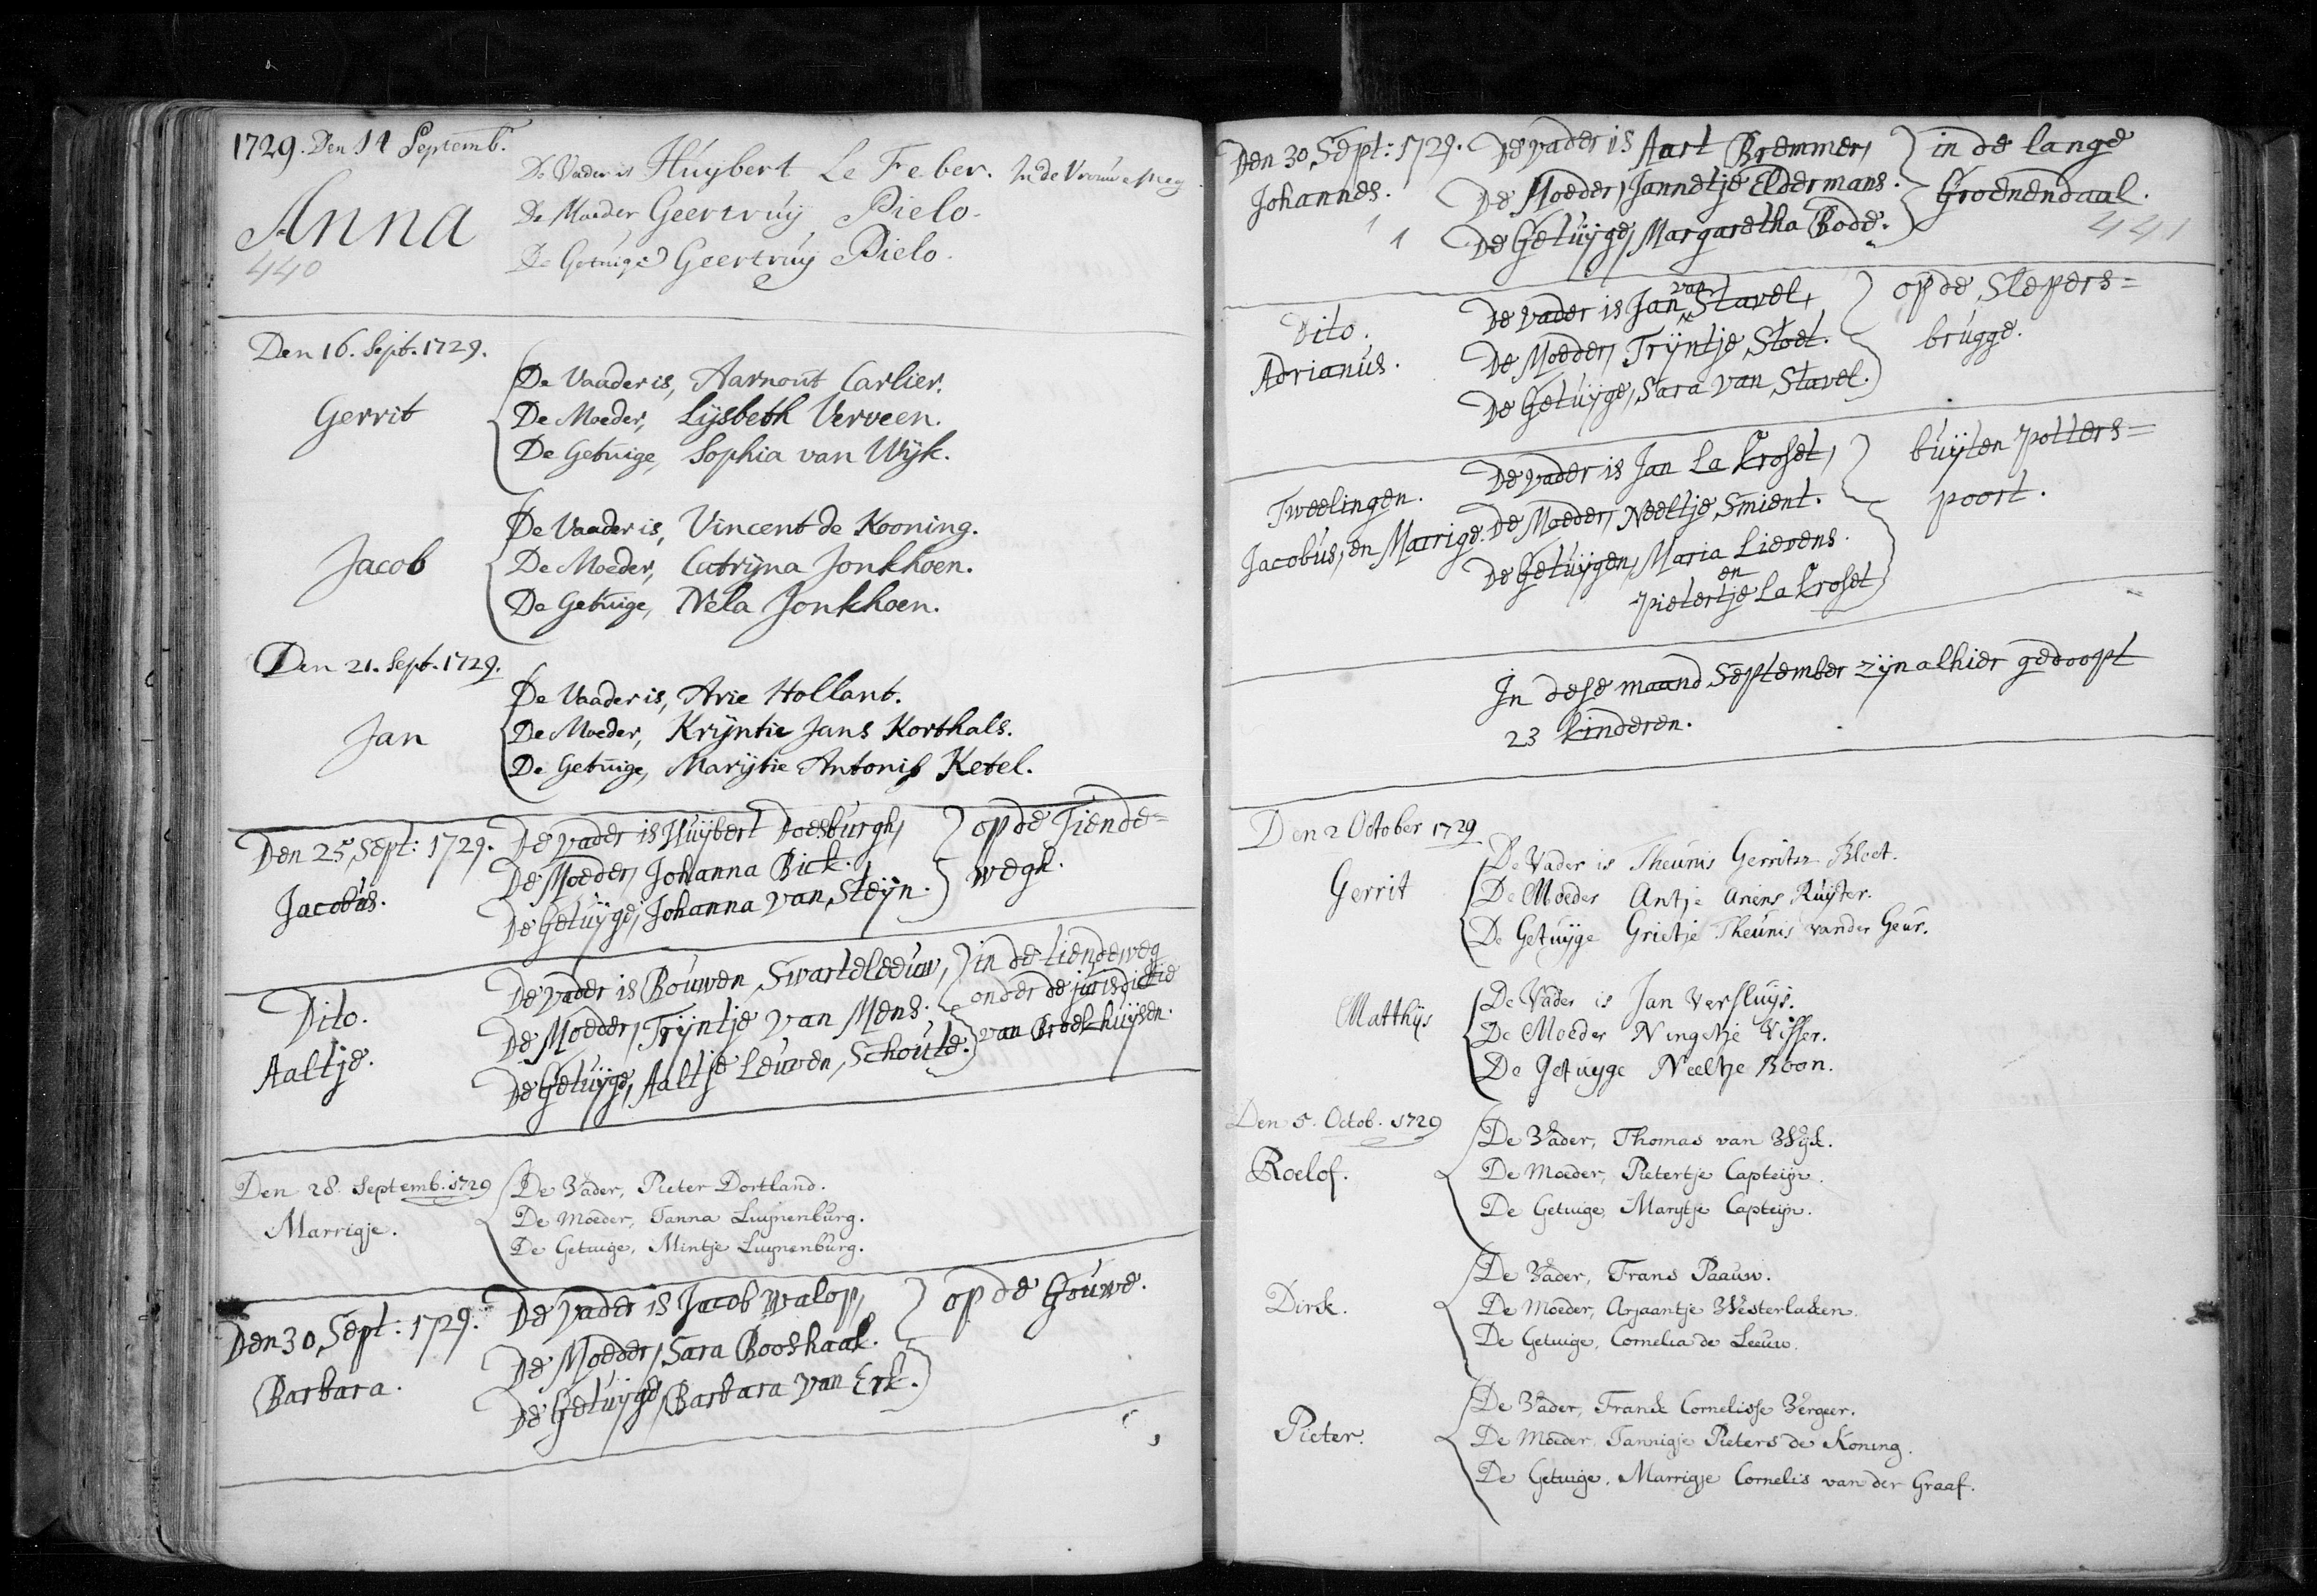 1729. Den 14 Septemb.
Anna
440
De Vader is Huybert Le Feber. In de Vrouwesteeg
De Moeder Geertruy Pielo.
De Getuige Geertruy Pielo.
Den 16. Sept. 1729.
Gerrit
De Vaader is, Aarnout Carlier.
De Moeder, Lysbeth Verveen.
De Getuige, Sophia van Wyk.
Jacob
De Vaader is, Vincent de Kooning.
De Moeder, Catryna Jonkhoen.
De Getuige, Nela Jonkhoen.
Den 21. Sept. 1729.
Jan
De Vaader is, Arie Hollant.
De Moeder, Kryntie Jans Korthals.
De Getuige, Marytie Antonis Ketel.
Den 25 Sept: 1729.
Jacobus.
De vader is Huybert Doesburgh,
De Moeder, Johanna Bick.
De Getuyge, Johanna van Steyn.
op de Tiende=
wegh.
Dito.
Aaltje.
De vader is Bouwen Swarteleeuw,
De Moeder, Tryntje van Mens.
De Getuyge, Aaltje Leuwen Schoute.
in de tiendeweg
onder de jurisdictie
van Broekhuysen.
Den 28. Septemb. 1729
Marrigje.
De Vader, Pieter Dortland.
De Moeder, Janna Luynenburg.
De Getuige, Mintje Luynenburg.
Den 30 Sept: 1729.
Barbara.
De vader is Jacob Walop,
De Moeder, Sara Booshaak.
De Getuyge, Barbara van Erk.
op de Gouwe.
Den 30 Sept: 1729.
Johannes.
De vader is Aart Bremmer,
De Moeder, Jannetje Eldermans.
De Getuyge, Margaretha Bode.
in de lange
Groenendaal.
441
Dito.
Adrianus.
De vader is Jan van Stavel,
De Moeder, Tryntje Stoet.
De Getuyge, Sara van Stavel.
op de Slepers=
brugge.
Tweelingen.
Jacobus, en Marrige.
De vader is Jan La Kroset,
De Moeder, Neeltje Smient.
De Getuygen, Maria Lievens
en
Pietertje La Kroset
buyten Potters=
poort.
In dese maand September zyn alhier gedoopt
23 kinderen.
Den 2 October 1729
Gerrit
De Vader is Theunis Gerritsz Bloot.
De Moeder Antje Ariens Ruyter.
De Getuyge Grietje Theunis vander Geur.
Matthys
De Vader is Jan Versluys.
De Moeder Ningetje Visser.
De Getuyge Neeltje Boon.
Den 5. Octob. 1729
Roelof.
De Vader, Thomas van Wyk.
De Moeder, Pietertje Capteyn.
De Getuige, Marytje Capteyn.
Dirk.
De Vader, Frans Paauw.
De Moeder, Arjaantje Westerlaken.
De Getuige, Cornelia de Leeuw.
Pieter.
De Vader, Frank Cornelisse Vergeer.
De Moeder, Jannigje Pieters de Koning.
De Getuige, Marrigje Cornelis van der Graaf.